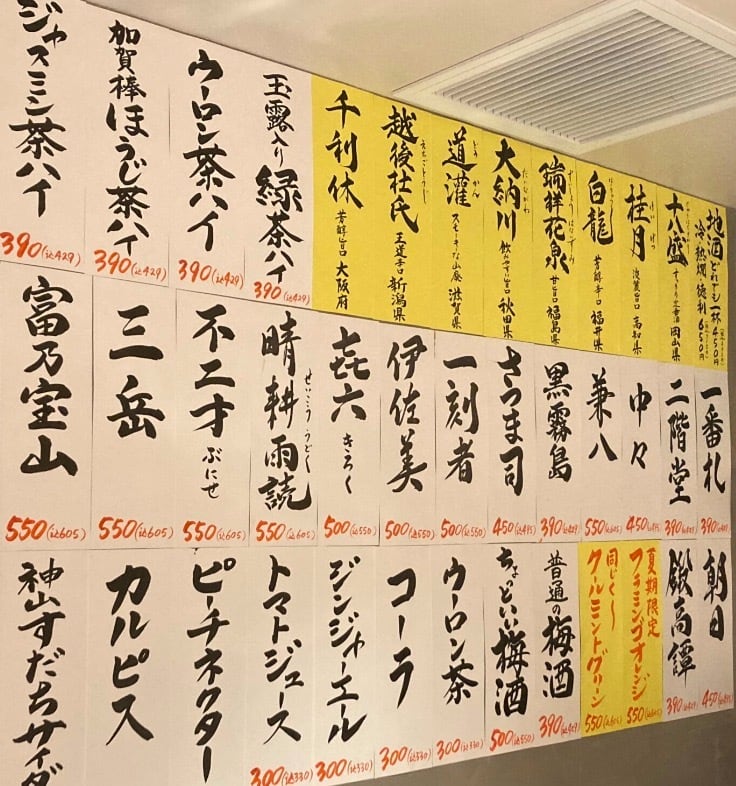 地酒どれでも一杯450円
冷熱燗徳利650円
十八盛
岡山県
桂月 淡麗旨口 高知県
けいげつ
白龍 芳醇辛口 福井県
瑞祥花泉 甘旨口 福島県
大納川 飲みやすい旨口 秋田県
だいながわ
道灌 スモーキな山廃 滋賀県
どうかん
越後杜氏 王道辛口 新潟県
えちごとうじ
千利休 芳醇旨口 大阪府
玉露入り緑茶ハイ
390(込429)
ウーロン茶ハイ
390(込429)
加賀棒ほうじ茶ハイ
390(込429)
ジャスミン茶ハイ
390(込429)
一番札
390(込429)
二階堂
390(込429)
中々
450(込495)
兼八
550(込605)
黒霧島
390(込429)
さつま司
450(込495)
一刻者
500(込550)
伊佐美
500(込550)
㐂六 きろく
500(込550)
晴耕雨読
せいこううどく
550(込605)
不二才 ぶにせ
550(込605)
三岳
550(込605)
富乃宝山
550(込605)
朝日
450(込495)
飫高譚
390(込429)
夏期限定
フラミンゴオレンジ
550(込605)
同じく〜
クールミントグリーン
550(込605)
普通の梅酒
390(込429)
ちょっといい梅酒
500(込550)
ウーロン茶
300(込330)
コーラ
300(込330)
ジンジャーエール
300(込330)
トマトジュース
300(込330)
ピーチネクター
カルピス
神山すだちサイダ